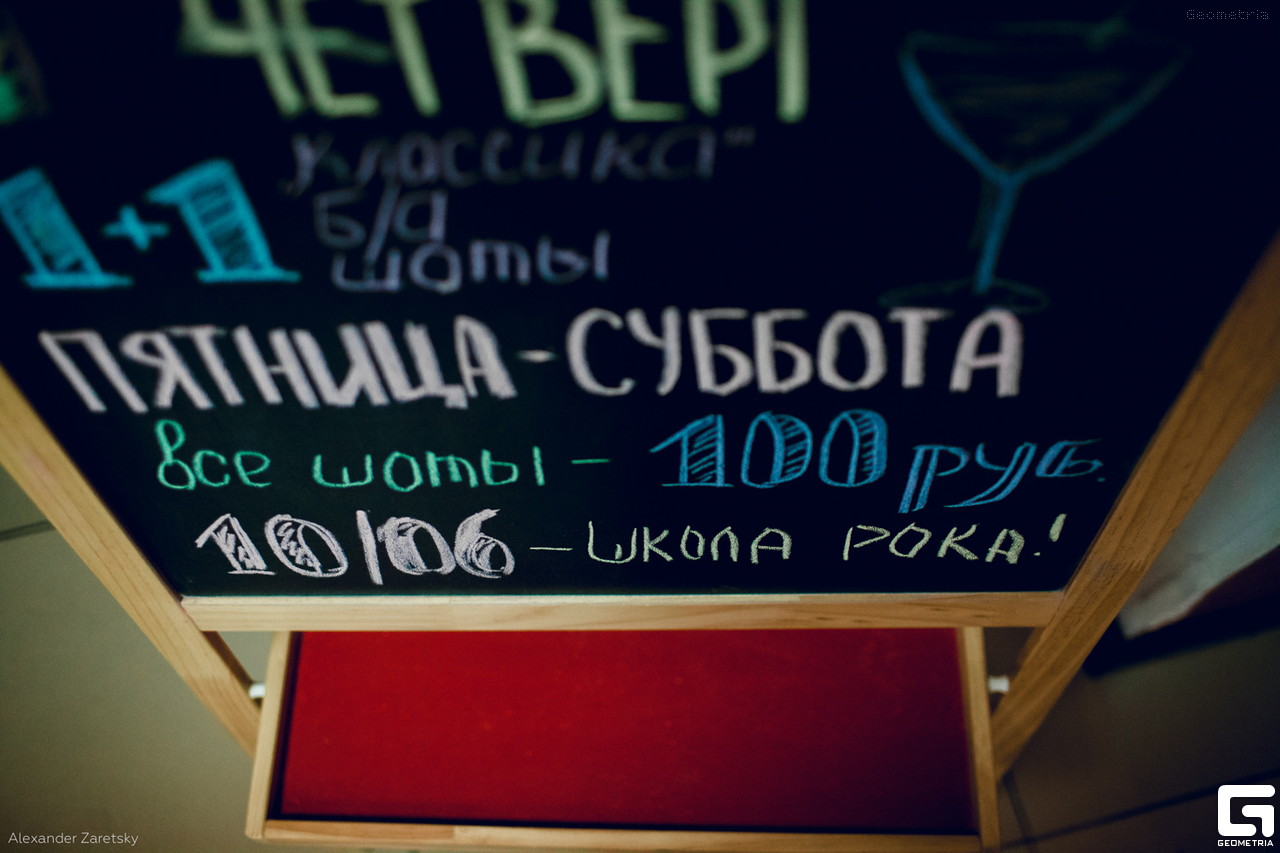 Geometria
ЧЕТВЕРГ
1+1 „классика"
б/а
шоты
ПЯТНИЦА-СУББОТА
все шоты - 100 руб.
10/06 - ШКОЛА РОКА!
Alexander Zaretsky
GEOMETRIA